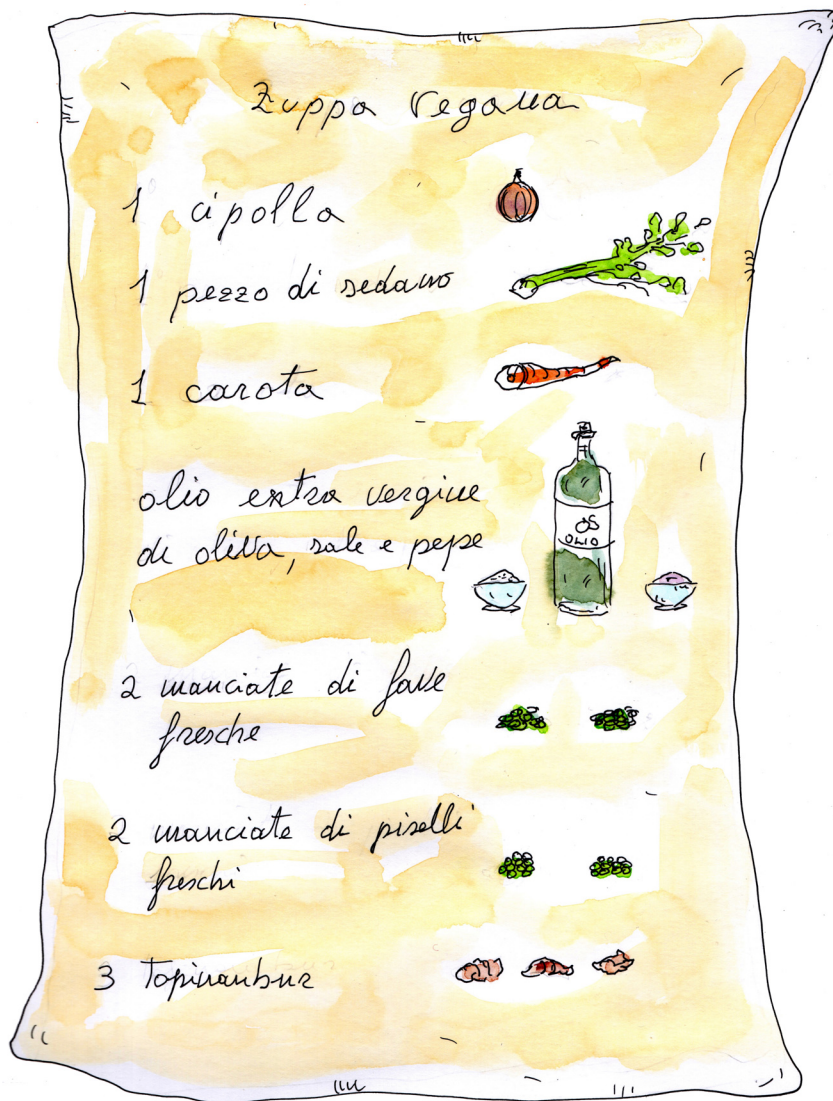 Zuppa Vegana
1 cipolla
1 pezzo di sedano
1 carota
olio extra vergine
di oliva, sale e pepe
OLIO
2 manciate di fave
fresche
2 manciate di piselli
freschi
3 Topinambur